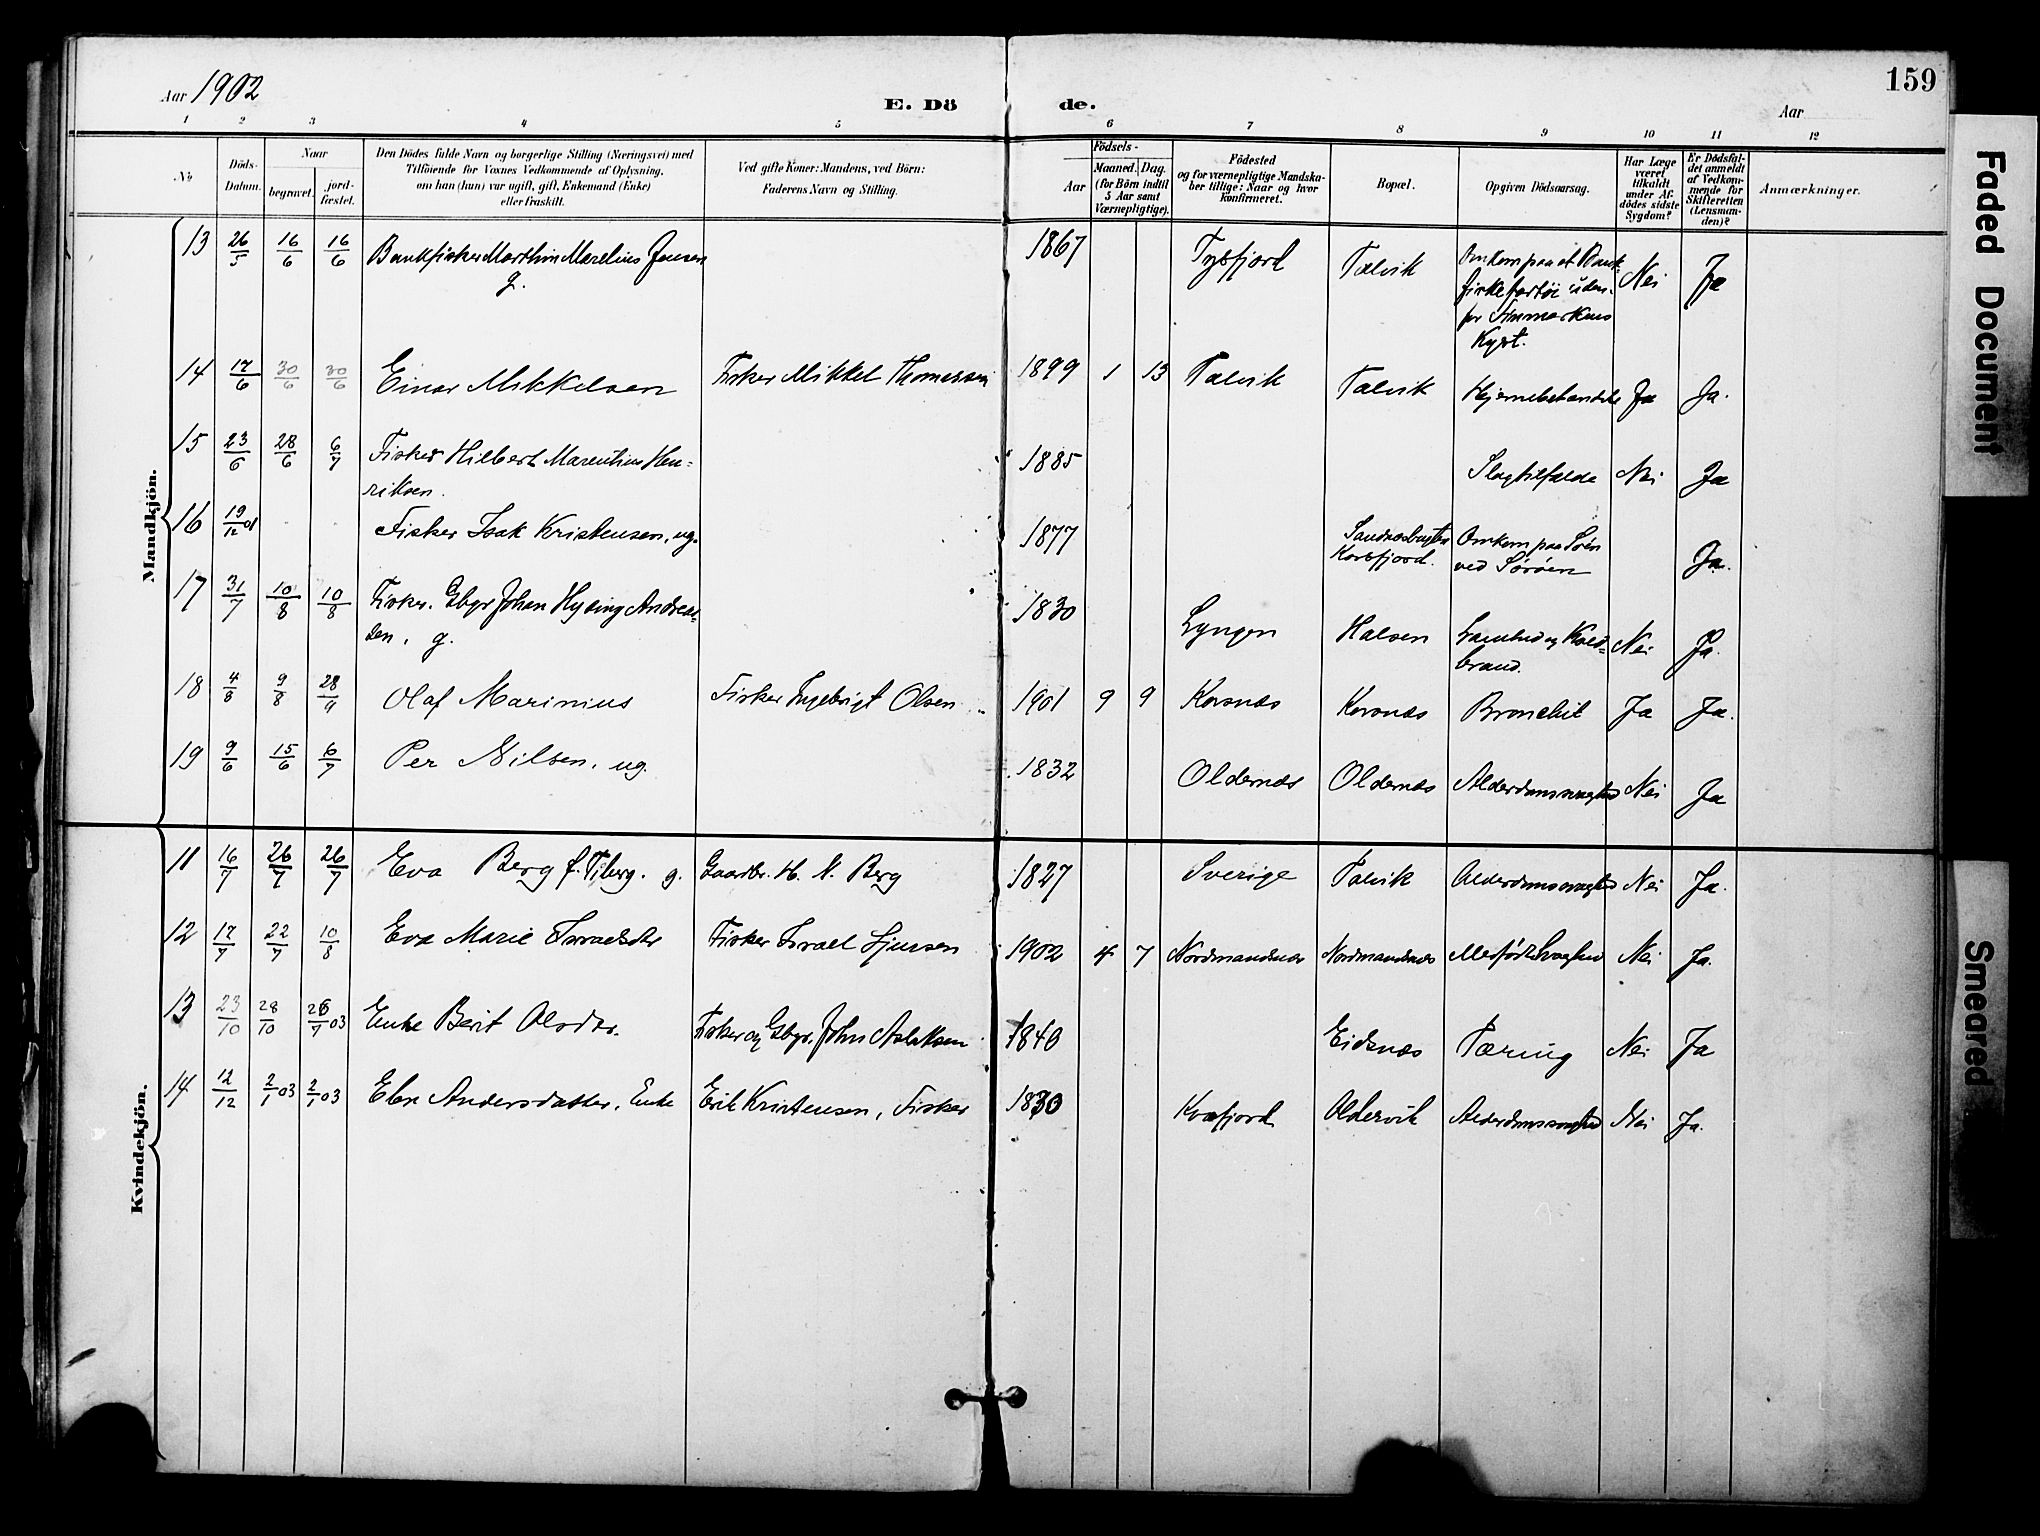 159
Aar 1902
E. Dö de.
Aar
1 2 3 4 5 6 7 8 9 10 11 12
No
Döds-Datum.
Naar
begravet.
jord-fæstet.
Den Dödes fulde Navn og borgerlige Stilling (Næringsvei) med
Tilföiende for Voxnes Vedkommende af Oplysning,
om han (hun) var ugift, gift, Enkemand (Enke)
eller fraskilt.
Ved gifte Koner: Mandens, ved Börn:
Faderens Navn og Stilling.
Födsels-
Aar
Maaned. Dag.
(for Börn indtil
5 Aar samt
Værnepligtige).
Födested
og for værnepligtige Mandska-
ber tillige: Naar og hvor
konfirmeret.
Bopæl.
Opgiven Dödsaarsag.
Har Læge
været
tilkaldt
under Af-
dödes sidste
Sygdom?
Er Dödsfal-
det anmeldt
af Vedkom-
mende for
Skifteretten
(Lensman-
den)?
Anmærkninger.
Mandkjön.
13 26/5 16/6 16/6 Bankfisker Marthin Marelius Jensen 1867 Tysfjord Talvik Omkom paa et Bank- Nei Ja
g. fiskefartöi uden-
for Finmarkens
Kyst.
14 17/6 30/6 30/6 Einar Mikkelsen Fisker Mikkel Thomassen 1899 1 13 Talvik Talvik Hjernebetændelse Ja Ja.
15 23/6 28/6 6/7 Fisker Hilbert Marentius Hen- 1885 Slagtilfælde Nei Ja
riksen.
16 19/12 01 Fisker Isak Kristensen, ug. 1877 Sandnesbugten Omkom paa Söen Ja.
Korsfjord. ved Söröen
17 31/7 10/8 10/8 Fisker. Gbgr Johan Hysing Andreas- 1830 Lyngen Halsen og Kold- Nei Ja.
sen, g. brand.
18 4/8 9/8 28/9 Olaf Marinius Fisker Ingebrigt Olsen 1901 9 9 Korsnæs Korsnæs Bronchit Ja Ja.
19 9/6 15/6 6/7 Per Nilsen, ug. 1832 Oldernæs Oldernæs Alderdomssvaghed Nei Ja
Kvindekjön.
11 16/7 26/7 26/7 Eva Berg f. Tiberg. g. Gaardbr. H. N. Berg 1827 Sverige Talvik Alderdomssvaghed Nei Ja.
12 17/7 22/7 10/8 Eva Marie Israelsdtr Fisker Israel Sjursen 1902 4 7 Nordmandsnæs Nordmandsnæs Medfödt Svaghed Nei Ja.
13 23/10 28/10 26/7 03 Enke Berit Olsdtr. Fisker og Gbgr. John Aslaksen 1840 Eidsnæs Tæring Nei Ja
14 12/12 2/1 03 2/1 03 Elen Andersdatter, Enke Erik Kristensen, Fisker 1830 Kvæfjord Oldervik Alderdomssvaghed Nei Ja.
Faded Document
Smeared